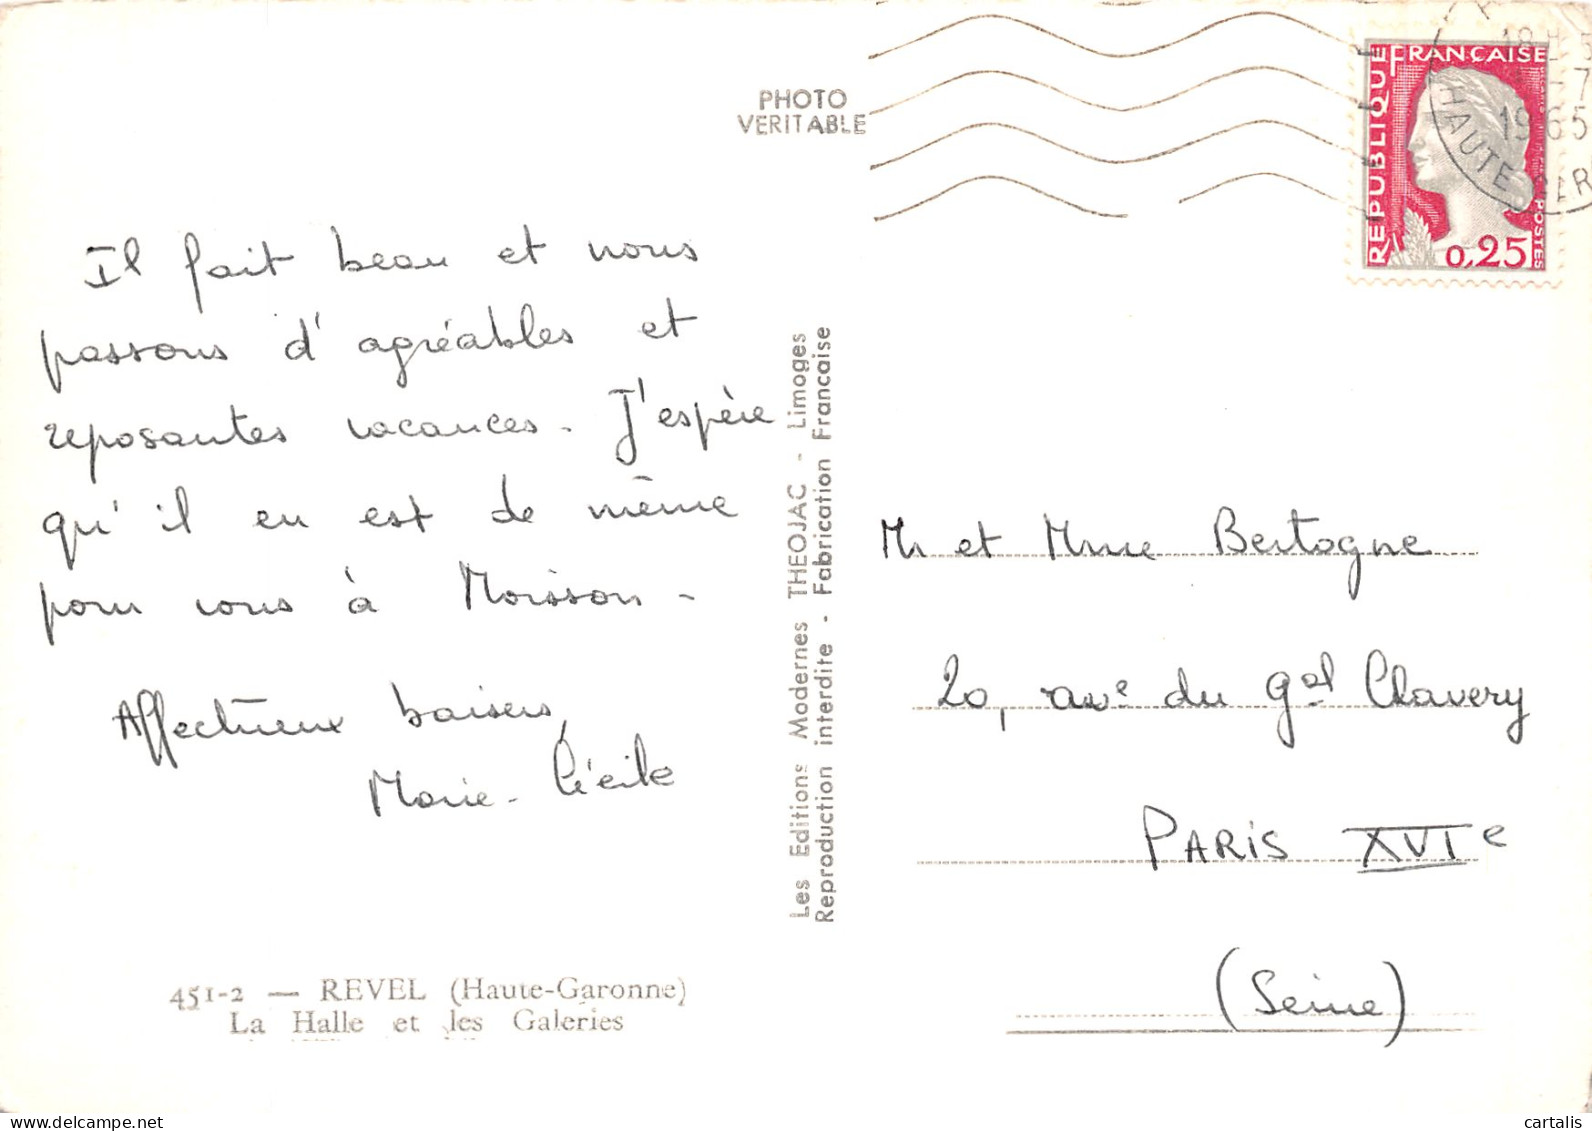 PHOTO
VERITABLE
RÉPUBLIQUE FRANÇAISE
POSTES
0,25
18H
1965
HAUTE
Il fait beau et nous
passons d'agréables et
reposantes vacances. J'espère
qu'il en est de même
pour vous à Moisson -
Affectueux baisers,
Marie-Cécile
451-2 — REVEL (Haute-Garonne)
La Halle et les Galeries
Les Editions Modernes THEOJAC - Limoges
Reproduction interdite - Fabrication Francaise
Mr et Mme Bertogne
20, ave du gal Clavery
PARIS XVIe
(Seine)
cartalis